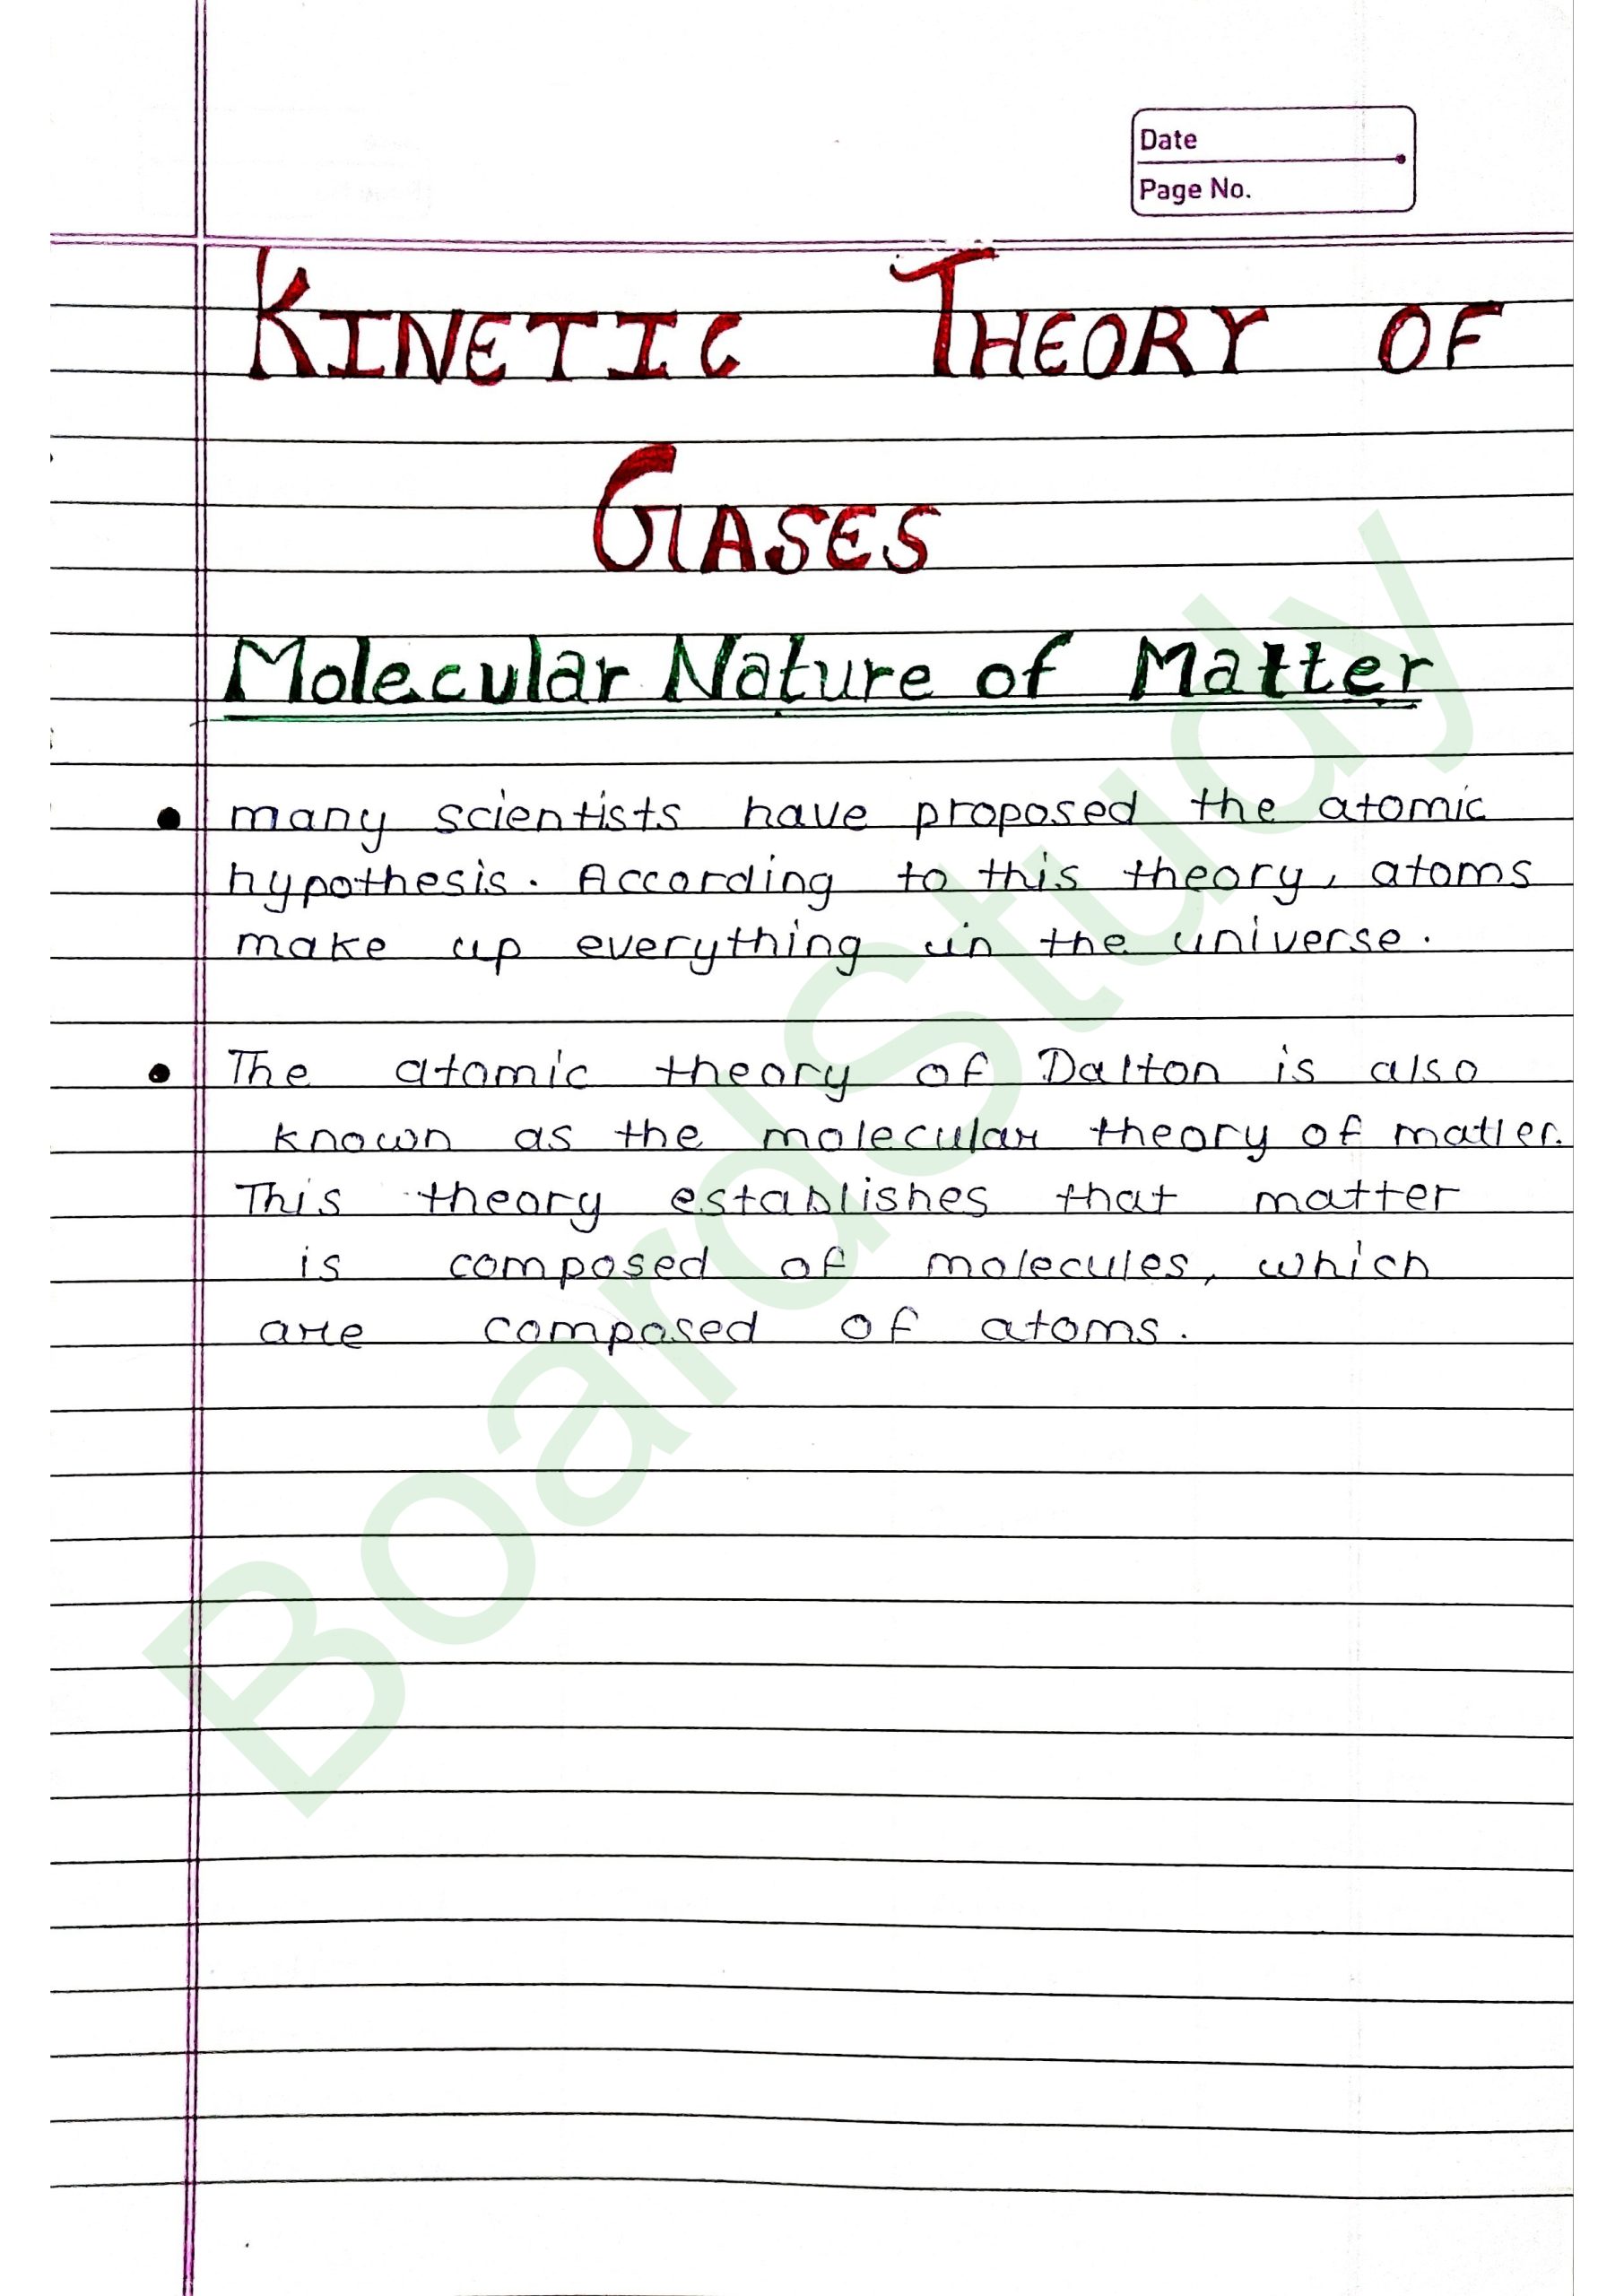 Date
Page No.
KINETIC THEORY OF
GASES
Molecular Nature of Matter
• many scientists have proposed the atomic
hypothesis. According to this theory, atoms
make up everything in the universe.
• The atomic theory of Dalton is also
known as the molecular theory of matter.
This theory establishes that matter
is composed of molecules, which
are composed of atoms.
BoardStudy